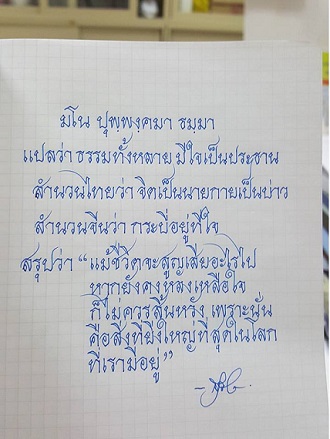 มโน ปุพฺพงฺคมา ธมฺมา
แปลว่า ธรรมทั้งหลาย มีใจเป็นประธาน
สำนวนไทยว่า จิตเป็นนายกายเป็นบ่าว
สำนวนจีนว่า กระบี่อยู่ที่ใจ
สรุปว่า “แม้ชีวิตจะสูญเสียอะไรไป
หากยังคงหลงเหลือใจ
ก็ไม่ควรสิ้นหวัง เพราะนั่น
คือสิ่งที่ยิ่งใหญ่ที่สุดในโลก
ที่เรามีอยู่”